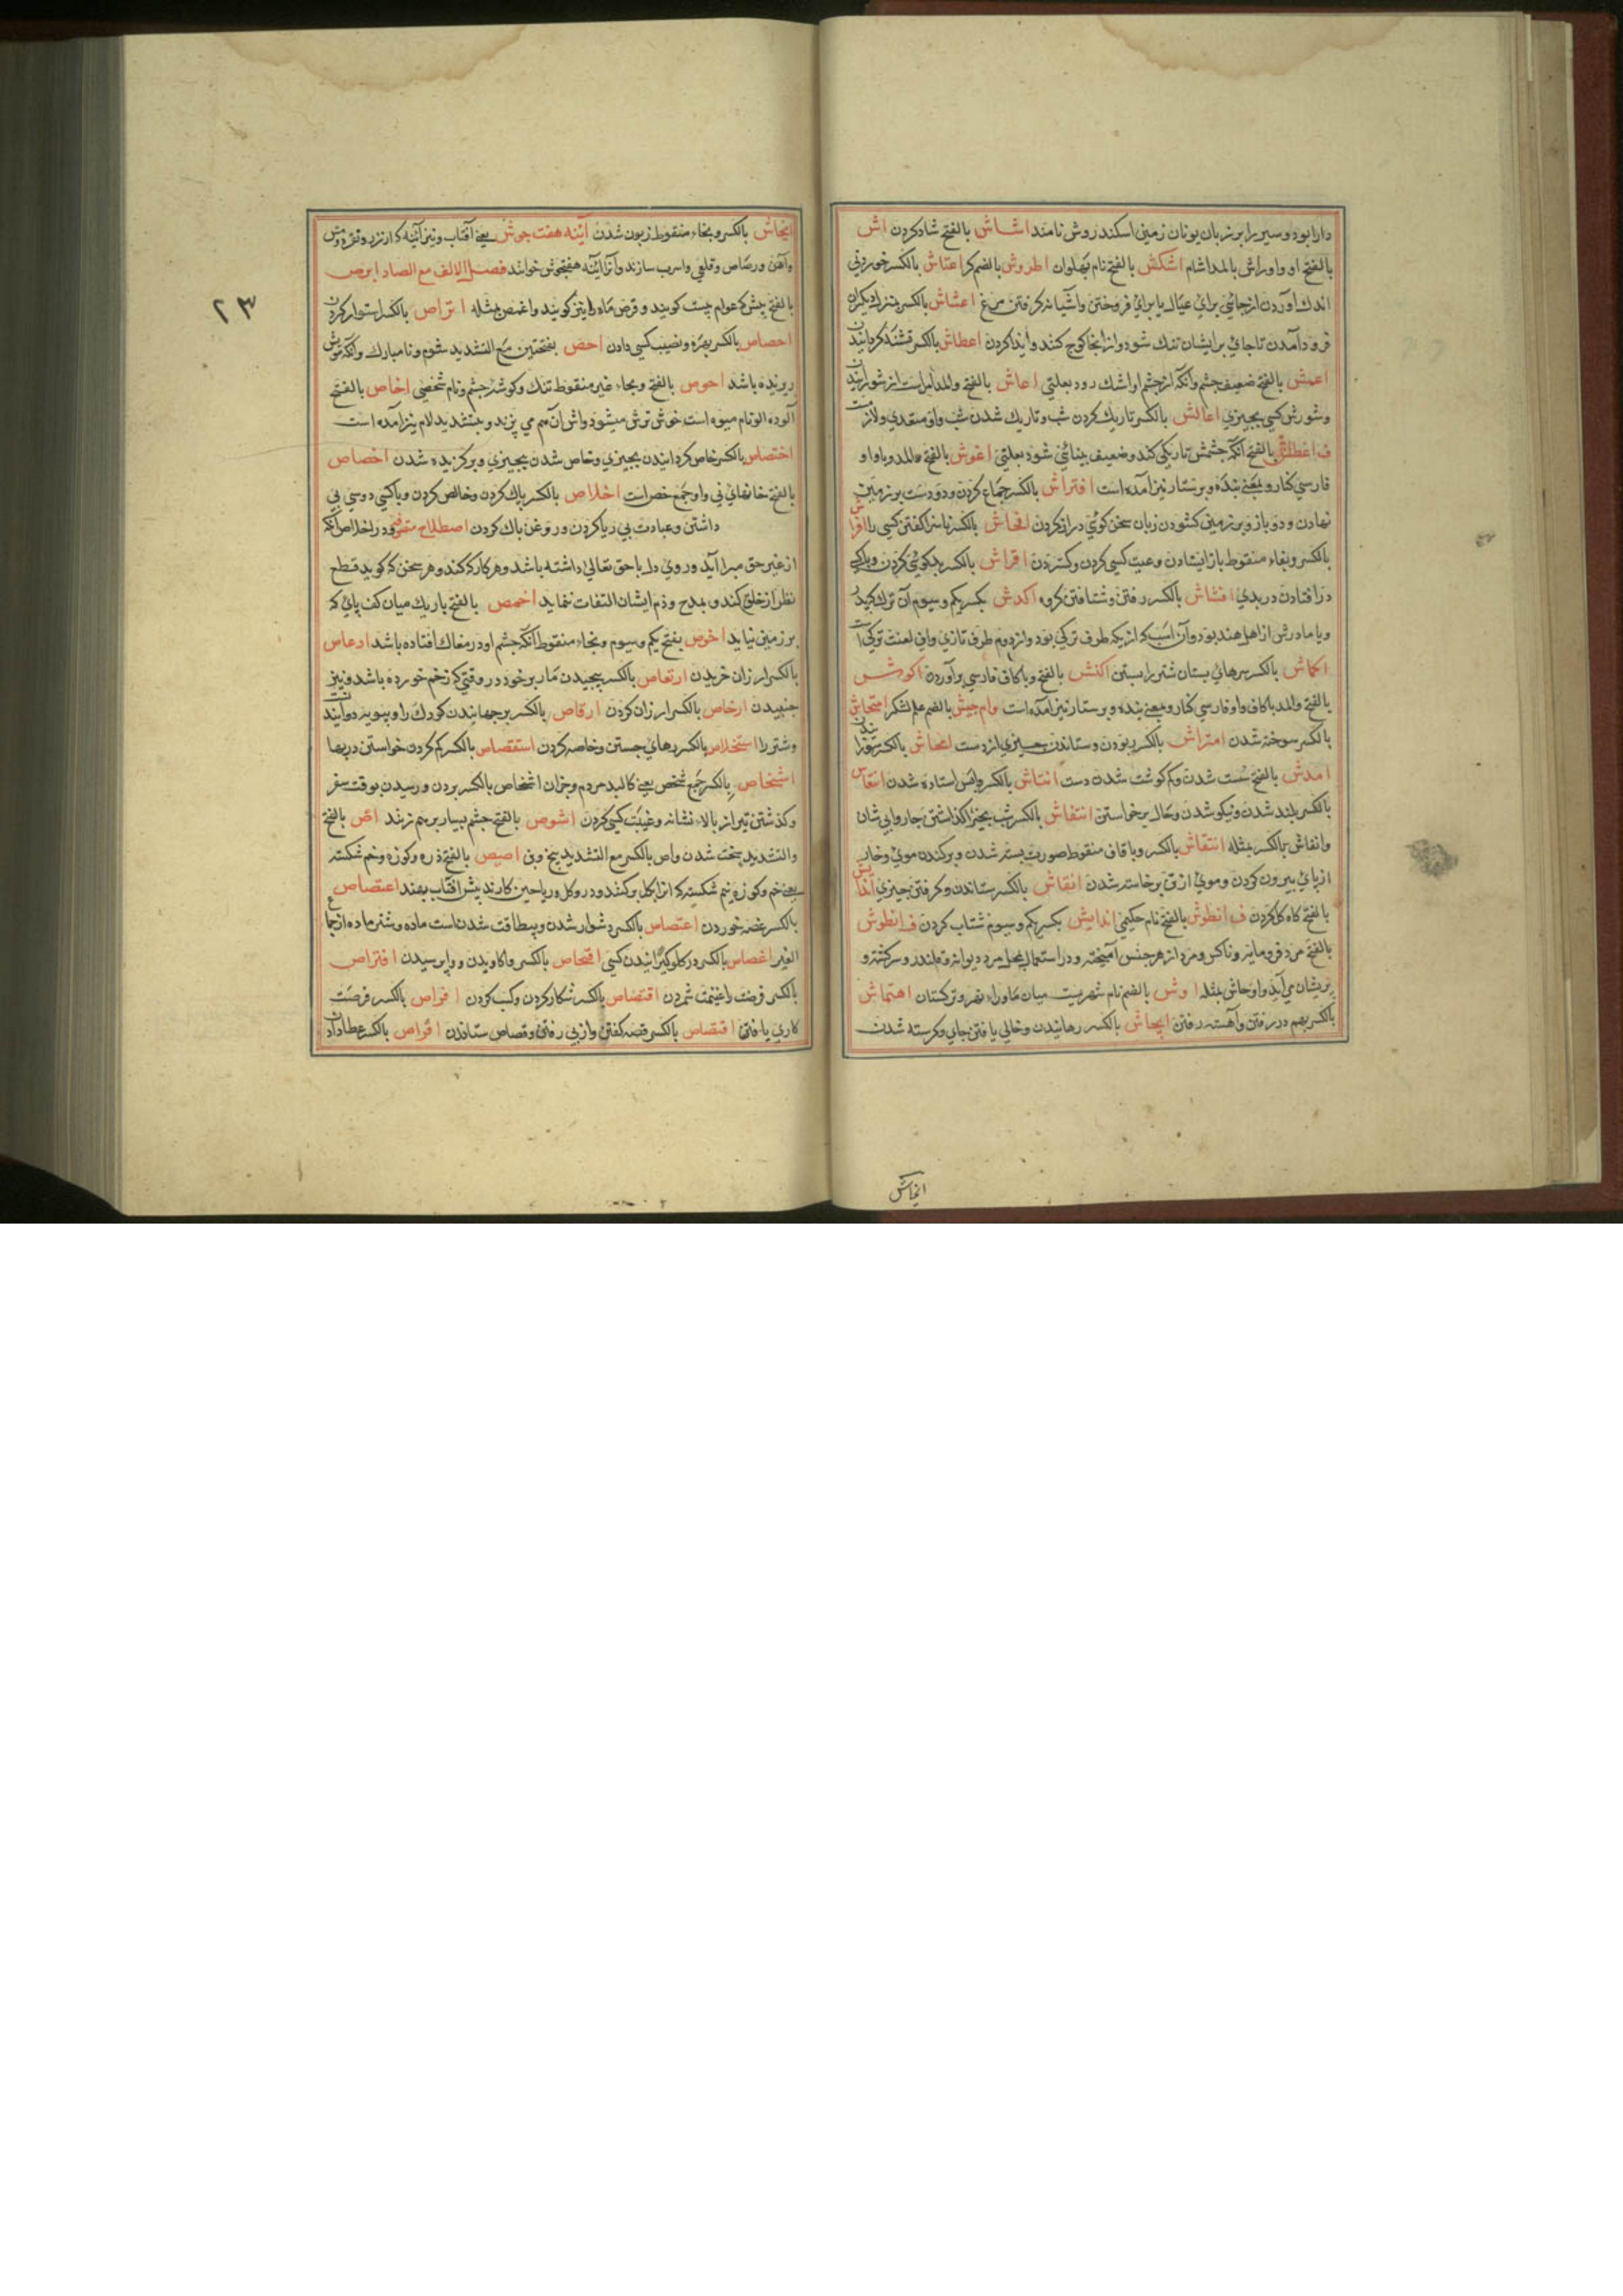 دارا بود و سیر را بر زبان یونان زمین اسکندروش نامند اشاش بالفتح شاد کردن اش
بالفتح او و اوراش بالمد اشام اشکش بالفتح نام پهلوان اطروش بالضم کر اعتاش بالکسر خوردنی
اندك آوردن از جائی برای عیال یا برای فروختن و آشیانه گرفتن مرغ اعشاش بالکسر بمنزل دیگران
فرود آمدن تا جای بر ایشان تنك شود و از آنجا کوچ کنند و ایذا کردن اعطاش بالکسر تشنه کردانیدن
اعمش بالفتح ضعیف چشم و آنکه از چشم او اشك رود بعلتی اعاش بالفتح
و شورش کسی بچیزی اغالش بالکسر تاریك کردن شب و تاریك شدن شب و او متعدی و لازمست
ف اغطاش بالفتح آنکه چشمش تاریکی کند و ضعیف بینائی شود بعلتی اغوش بالفتح والمد و با واو
فارسی کنار و بمعنی بنده و پرستار نیز آمده است افتراش بالکسر جماع کردن و دو دست بر زمین
نهادن و دو بازو بر زمین کشودن زبان سخن کوئی دراز کردن افحاش بالکسر ناسزا کفتن کسی را افراش
بالکسر و بفاء منقوط باز ایستادن و عیب کسی کردن و کستردن اقراش بالکسر بدکوئی کردن
در افتادن در بدی افشاش بالکسر رفتن و شتافتن کروه اکدش بکسر یکم و سیوم آن ترك که پدر
و یا مادرش از اهل هند بود و آن اسب که از یکه طرف ترکی بود و از دوم طرف تازی و این لغت ترکی است
اکماش بالکسر سرهای پستان شتر را بستن اکنش بالفتح و با کاف فارسی بر آوردن اکوش
بالفتح والمد با کاف و واو فارسی کنار و بمعنی بنده و پرستار نیز آمده است وام جیش بالضم علم لشکر امتحاش
بالکسر سوخته شدن امتراش بالکسر ربودن و ستاندن چیزی از دست امحاش بالکسر
امدش بالفتح سست شدن و کم کوشت شدن دست انتاش بالکسر واپس استاده شدن انتعاش
بالکسر بلند شدن و نیکو شدن و حال برخواستن انتفاش بالکسر شب بچرا کذاشتن چاروا بی شبان
وانفاش بالکسر مثله انتقاش بالکسر و با قاف منقوط صورت بسته شدن و برکندن موی و خار
از پای بیرون کردن و موی از تن برخاسته شدن انقاش بالکسر ستاندن و کرفتن چیزی اندایش
بالفتح کاه کل کردن ف انطوش بالفتح نام حکیمی اندایش بکسر یکم و سیوم شتاب کردن ف انطوش
بالفتح مرد فرومایه و ناکس و مرد از هر جنس آمیخته و در استعمال بمعنی مرد دیوانه و قلندر و سرکشته و
پریشان می آید و اوحاش مثله اوش بالضم نام شهریست میان ماوراء نهر و ترکستان اهتماش
بالکسر بهم در رفتن و آهسته رفتن ایحاش بالکسر رهانیدن و خالی یافتن جای و کرسنه شدن
انخاش
ایخاش بالکسر و بخاء منقوط زبون شدن آینه هفت جوش یعنی آفتاب و نیز آئینه که از زر و نقره و مس
و آهن و رصاص و قلعی و اسرب سازند و آنرا آئینه هفتجوش خوانند فصل الالف مع الصاد ابرص
بالفتح پیش که عوام پیست کویند و قرص ماه را نیز کویند و اغمص مثله اتراص بالکسر استوار کردن
احصاص بالکسر بهره و نصیب کسی دادن احص بفتحتین مع التشدید شوم و نامبارك و آنکه مویش
روینده باشد احوص بالفتح و بحاء غیر منقوط تنك کوشه چشم و نام شخصی اخاص بالفتح
آلوده الو نام میوه است خوش ترش میشود و اش آن هم می پزند و بتشدید لام نیز آمده است
اختصاص بالکسر خاص کردانیدن بچیزی و خاص شدن بچیزی و برکزیده شدن اخصاص
بالفتح خانهای نی و او جمع خص است اخلاص بالکسر پاك کردن و خالص کردن و با کسی دوستی بی
داشتن و عبادت بی ریا کردن و روغن پاك کردن اصطلاح متصوفه در اخلاص آنکه
از غیر حق مبرا آید و روی دل با حق تعالی داشته باشد و هر کار که کند و هر سخن که کوید قطع
نظر از خلق کند و بمدح و ذم ایشان التفات ننماید اخمص بالفتح باریك میان کف پای که
بر زمین نیاید اخوص بفتح یکم و سیوم و بخاء منقوط آنکه چشم او در مغاك افتاده باشد ارعاص
بالکسر ارزان خریدن ارتعاص بالکسر پیچیدن مار بر خود در وقتی که زخم خورده باشد و نیز
جنبیدن ارخاص بالکسر ارزان کردن ارقاص بالکسر برجهانیدن کودك را و بپویه دوانیدن
و شتر را استخلاص بالکسر رهای جستن و خاصه کردن استقصاص بالکسر کم کردن خواستن در بها
اشخاص بالکسر جمع شخص یعنی کالبد مردم و جز آن اشخاص بالکسر بردن و رسیدن بوقت سفر
و کذشتن تیر از بالاء نشانه و غیبت کسی کردن اشوص بالفتح چشم بسیار بر هم زننده اص بالفتح
والتشدید سخت شدن و اص بالکسر مع التشدید بیخ و بن اصیص بالفتح ذره و کوزه و خم شکسته
یعنی خم و کوزه نیم شکسته که از آن کل برکنند و درو کل و ریاحین کارند پیش افتاب بنهند اعتصاص
بالکسر غصه خوردن اعتصاص بالکسر دشوار شدن و بیطاقت شدن است ماده و شتر ماده از جماع
الغیر اغصاص بالکسر در کلو کیرانیدن کسی افتحاص بالکسر واکاویدن و واپرسیدن افتراص
بالکسر فرصت را غنیمت شمردن اقتناص بالکسر شکار کردن و کسب کردن افراص بالکسر فرصت
کاری یافتن اقتصاص بالکسر قصه کفتن و از پی رفتن و قصاص ستاندن اقراص بالکسر عطا دادن
۲۳